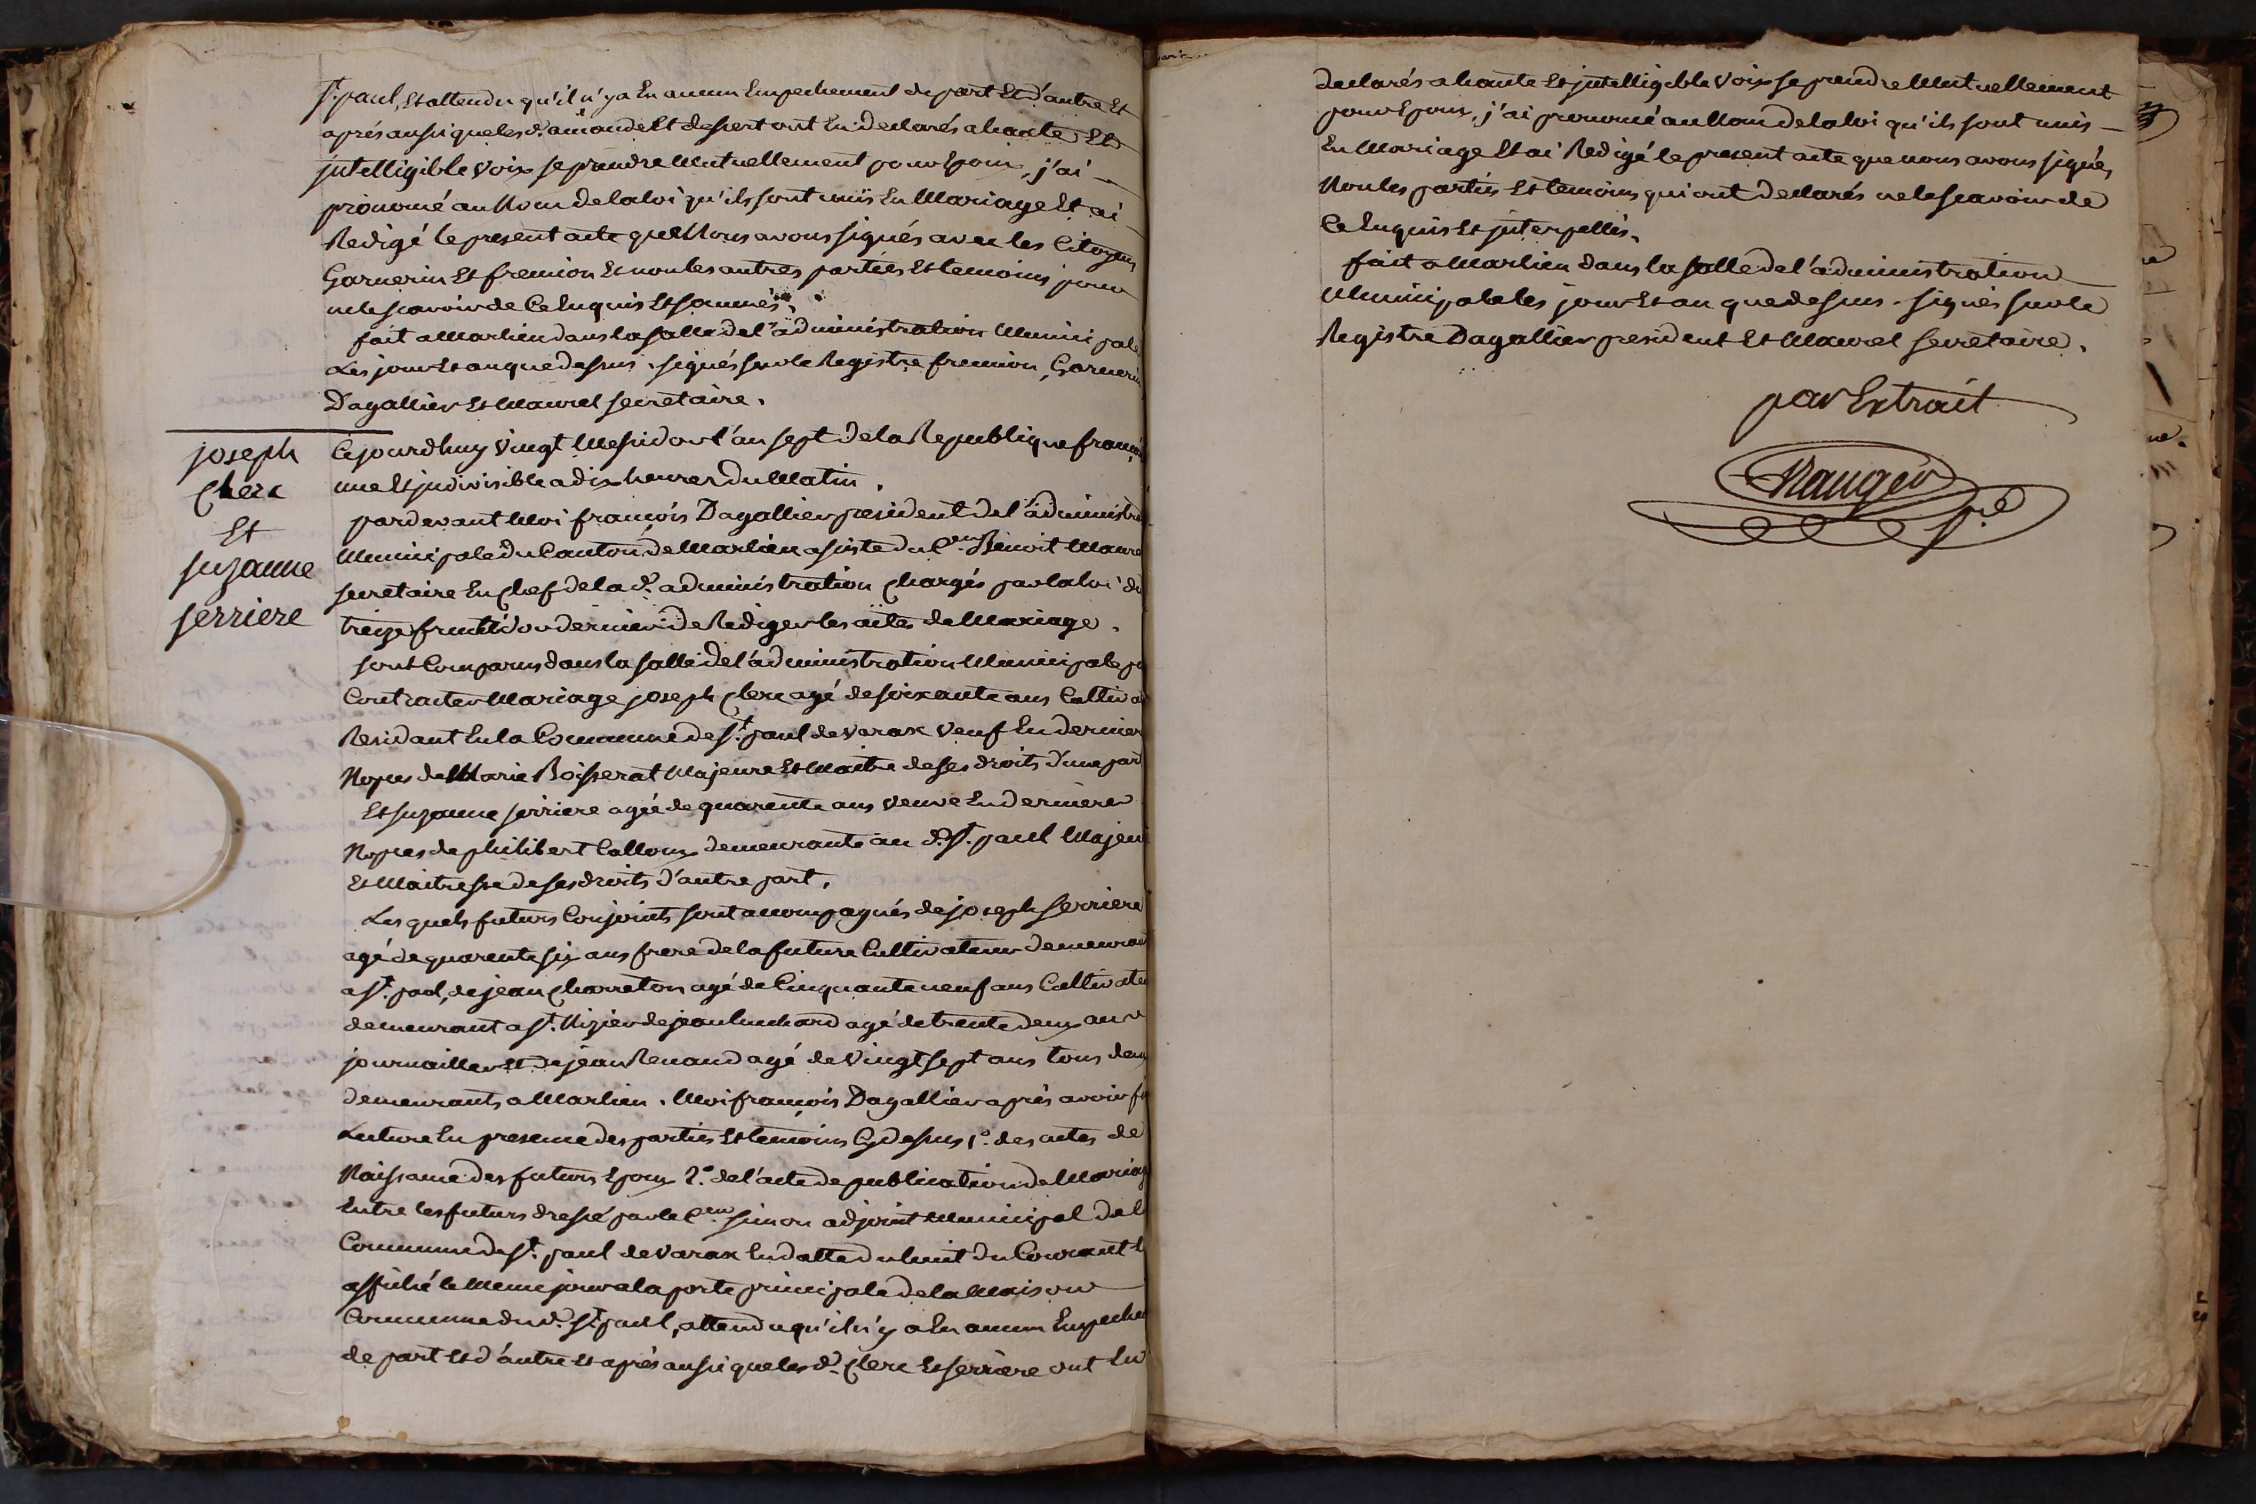 St. paul, Et attendu qu'il n'y a Eu aucun Empechement de part Et d'autre Et
aprés aussi que les d. amonde Et dessert ont Eu declarés a haute Et
jntelligible voix se prendre Mutuellement pour Epoux, j'ai
prononcé au Nom de la loi qu'ils sont unis En Mariage Et ai
Redigé le present acte que Nous avons signés avec les Citoyens
Garnerin Et fremion Et non les autres parties Et temoins pour
ne le scavoir de Ce Enquis Et sommés.
fait a Marlieu dans la salle de l'administration Municipale
Les jour Et an que dessus. signés sur le Registre fremion, Garnerin
Dagallier Et Maurel secretaire.
joseph
Clerc
Et
suzanne
serriere
Cejourdhuy vingt Messidor l'an sept de la Republique français
une Et jndivisible a dix heures du Matin.
pardevant Moi françois Dagallier president de l'administra
Municipale du Canton de Marlieu assisté du Cen. Benoit Maure
secretaire En Chef de la d. administration Chargés par la loi du
treize fructidor dernier de Rediger les actes de Mariage.
sont Comparus dans la salle de l'administration Municipale po
Contracter Mariage joseph Clerc agé de soixante ans Cultivat
Residant En la Commune de St. paul de varax veuf En dernier
Nopces de Marie Boisserat Majeur Et Maitre de ses droits d'une part
Et suzanne serriere agée de quarente ans veuve En derniere
Nopces de philibert Calloux demeurante au d. St. paul Majeu
Et Maitresse de ses droits d'autre part.
Les quels futurs Conjoints sont accompagnés de joseph serriere
agé de quarente six ans frere de la future Cultivateur demeurant
a St. paul, de jean Charreton agé de Cinquante neuf ans Cultivate
demeurant a St. Nizier de jean agé de trente deux ans
journaillier Et de jean Renaud agé de vingt sept ans tous deux
demeurants a Marlieu. Moi françois Dagallier aprés avoir f
Lecture En presence des parties Et temoins Cy dessus 1°. des actes de
Naissance des futurs Epoux 2°. de l'acte de publication de Mariag
Entre les futurs dressé par le Cen. simon adjoint Municipal de l
Commune de St. paul de varax En datte du huit du Courant E
affiché le Meme jour a la porte principale de la Maison
Commune du d. St. paul, attendu qu'il n'y a Eu aucun Empeche
de part Et d'autre Et aprés aussi que les d. Clerc Et serriere ont Eu
declarés a haute Et jntelligible voix se prendre Mutuellement
pour Epoux, j'ai prononcé au Nom de la loi qu'ils sont unis
En Mariage Et ai Redigé le present acte que nous avons signés,
Non les parties Et temoins qui ont declarés ne le scavoir de
Ce Enquis Et jnterpellés.
fait a Marlieu dans la salle de l'administration
Municipale les jour Et an que dessus. signés sur le
Registre Dagallier president Et Maurel secretaire.
par Extrait